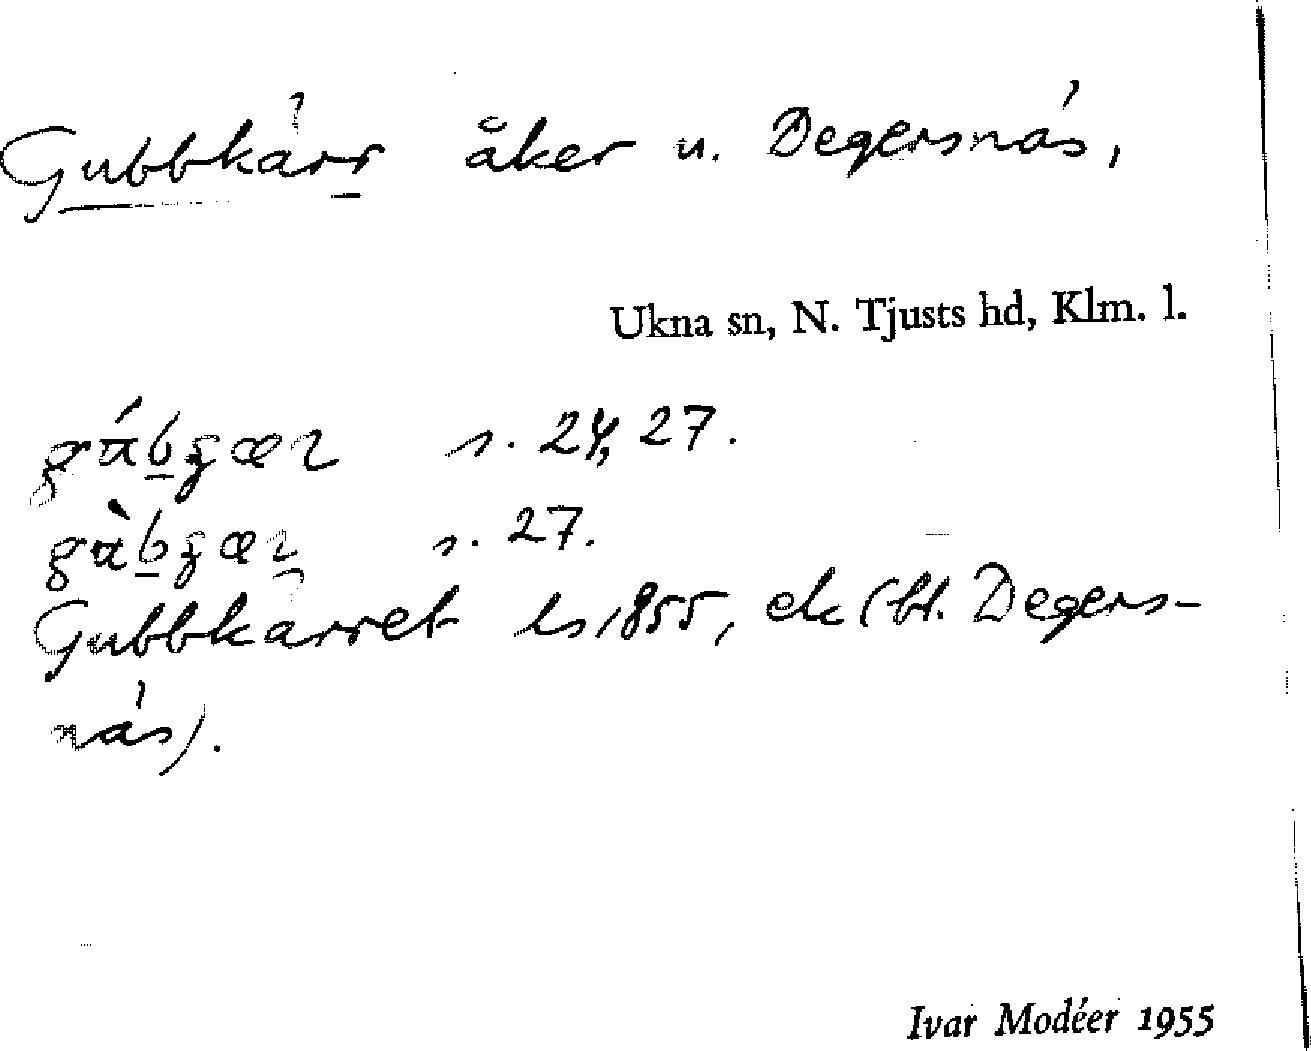 Gubbkärr åker u. Degersnäs,
Ukna sn, N. Tjusts hd, Klm. l.
s. 24, 27.
s. 27.
Gubbkärret ls 1855, elc (bl. Degers-
näs).
Ivar Modéer 1955